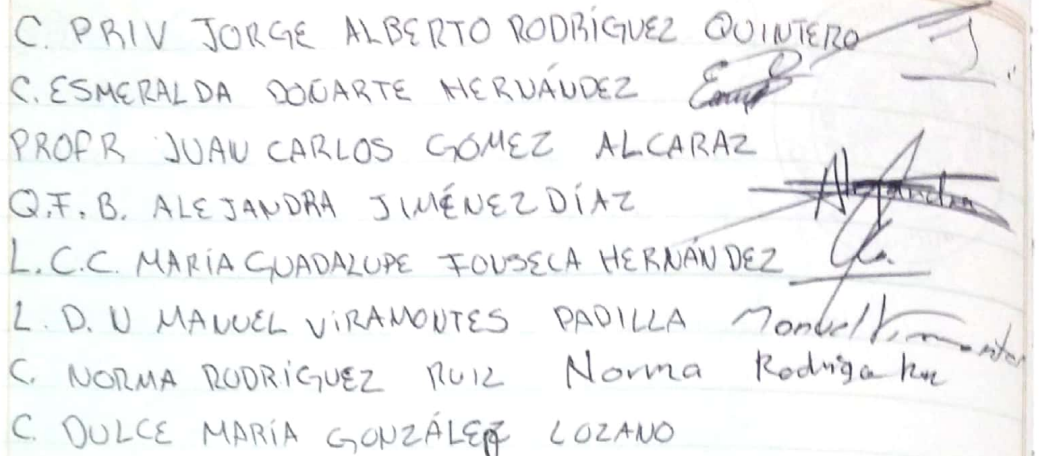 C. PRIV JORGE ALBERTO RODRÍGUEZ QUINTERO
C. ESMERALDA DOUARTE HERNÁNDEZ
PROFR JUAN CARLOS GÓMEZ ALCARAZ
Q.F.B. ALEJANDRA JIMÉNEZ DÍAZ Alejandra
L.C.C. MARÍA GUADALUPE FONSECA HERNÁNDEZ
L.D.U MANUEL VIRAMONTES PADILLA Manuel Viramontes
C. NORMA RODRÍGUEZ RUIZ Norma Rodriga Ruz
C. DULCE MARÍA GONZÁLEZ LOZANO